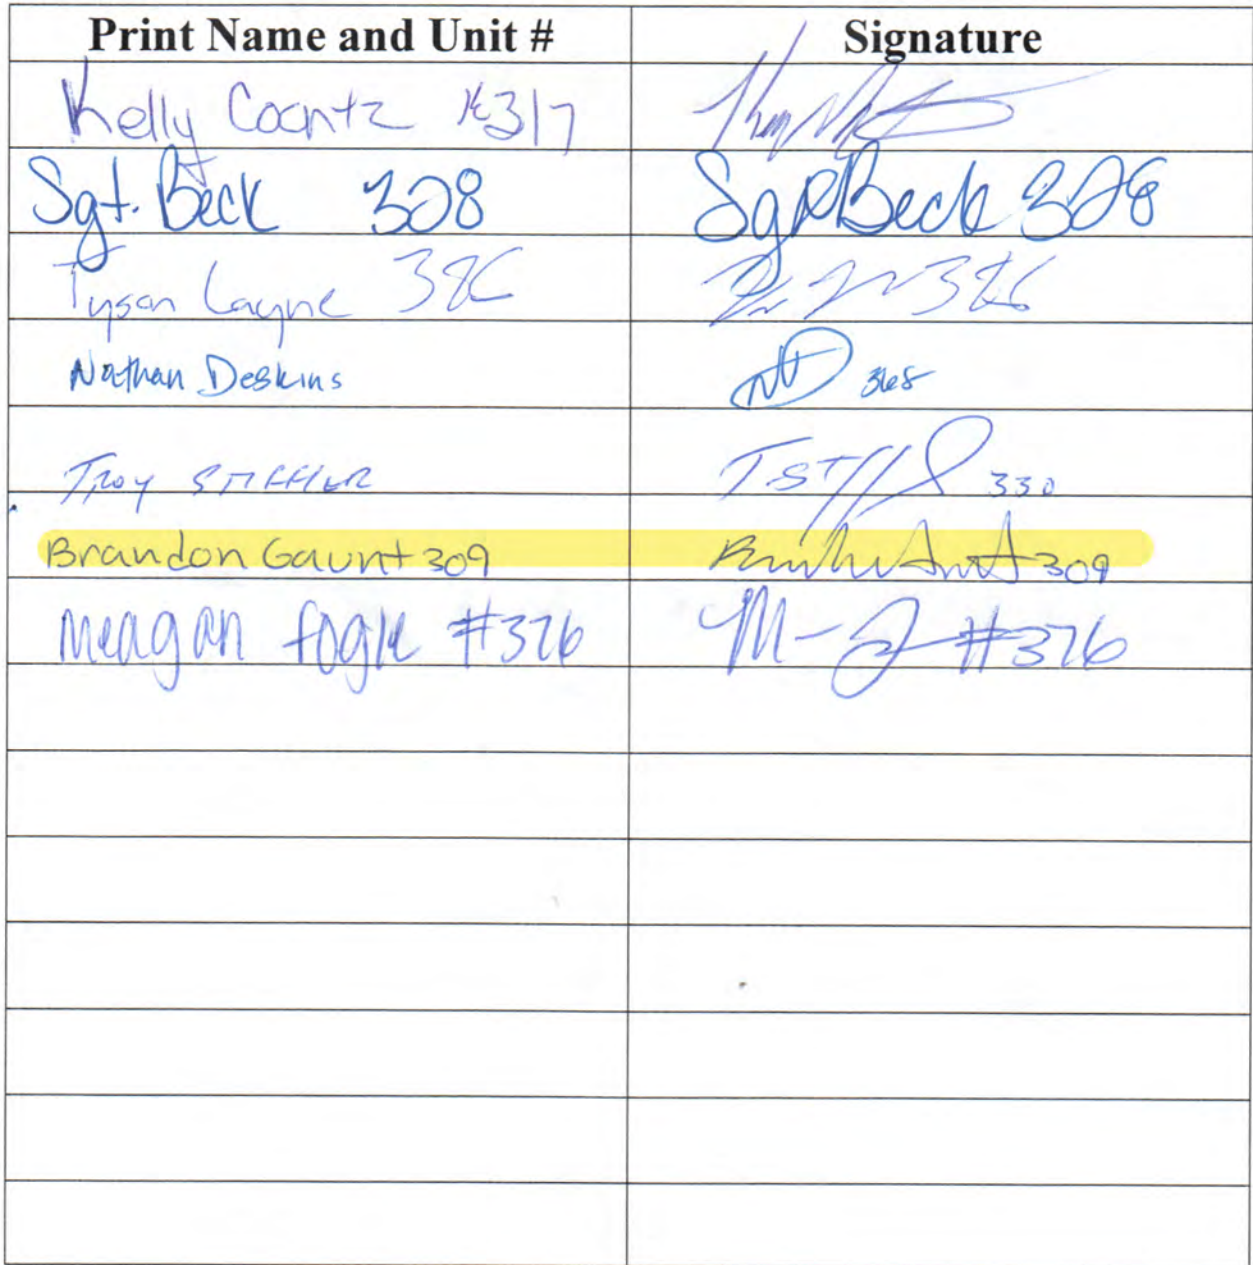 Print Name and Unit # Signature
Kelly Coontz K317
Sgt. Beck 328 Sgt Beck 328
Tyson Layne 386 386
Nathan Deskins ND 368
Troy STIFFLER 330
Brandon Gaunt 309 309
Meagan fogle #376 #376